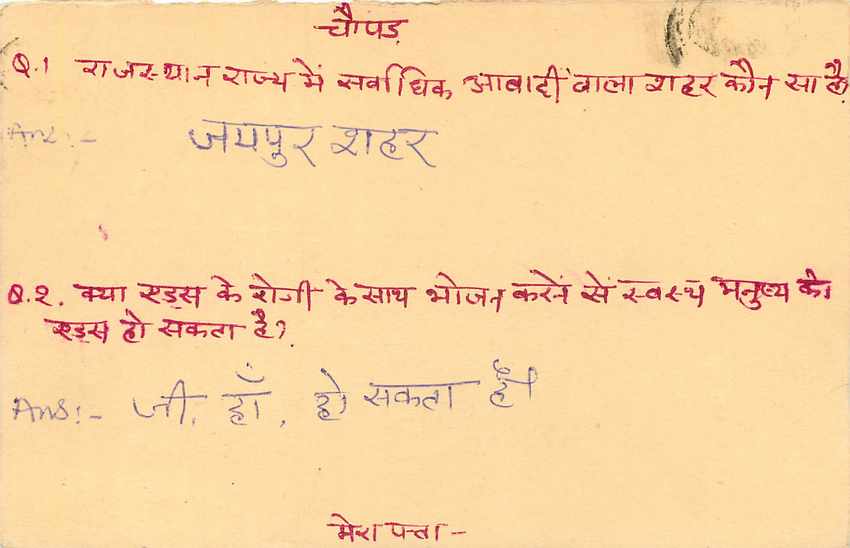 चौपड़
Q.1 राजस्थान राज्य में सर्वाधिक आबादी वाला शहर कौन सा है
Ans:- जयपुर शहर
Q.2. क्या एड्स के रोगी के साथ भोजन करने से स्वस्थ मनुष्य को
एड्स हो सकता है?
Ans:- जी, हाँ, हो सकता है।
मेरा पत्ता -